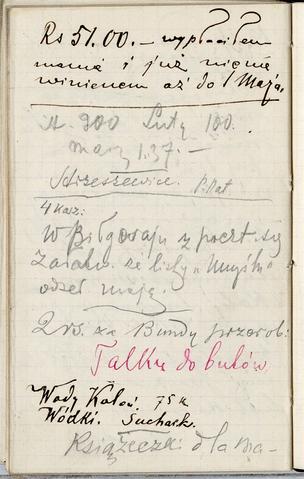 Rs 51.00. – wypłaciłem
mamie i już nie
winienem aż do 1 Maja.
A. 900 Luty 100.
marz 1.37. –
Strzeszewice. P. Nat
4 Kasz:
W Biłgoraju z poczt. się
Załatw. że listy „Umyśln"
odseł mają.
2 rs. za Bundy przerob:
Talku do butów.
Wody Koloń. 75 k
Wódki. Suchark.
Książeczk: dla Ma-